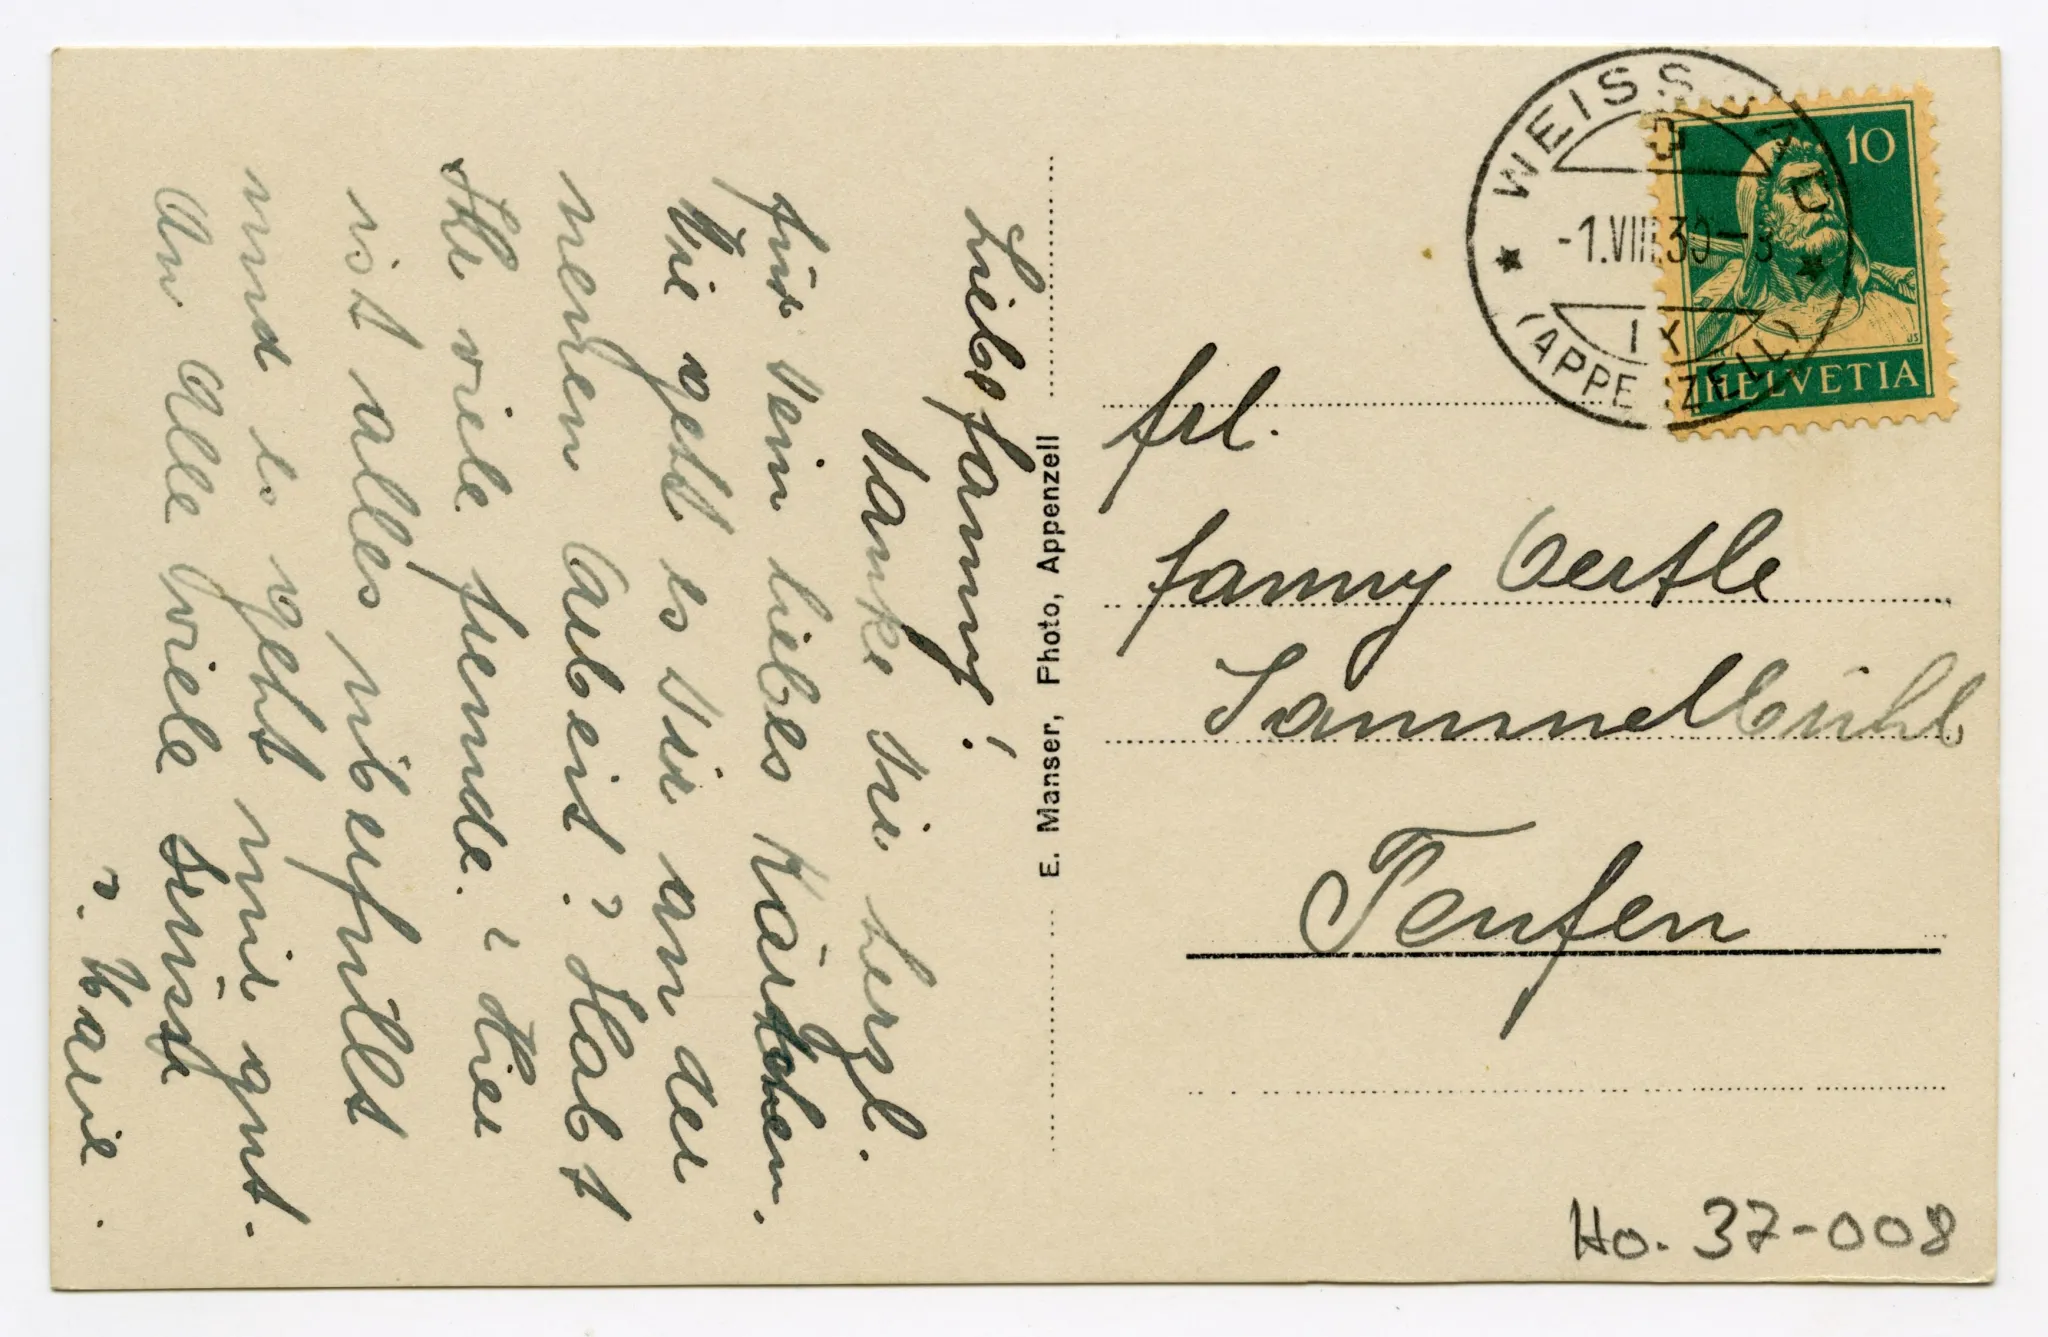 Liebs Fanny!
Danke Dir herzl.
für Dein liebes Kärtchen.
Wie geht es Dir an der
neuen Arbeit? Habt
Ihr viele fremde. Hier
ist alles überfüllt
und es geht mir gut.
An Alle viele Grüsse
v. Marie.
E. Manser, Photo, Appenzell
WEISSBAD
-1.VIII.30-
IX
(APPENZELL)
10
HELVETIA
Frl.
Fanny Oertle
Sammelbühl
Teufen
Ho. 37-008